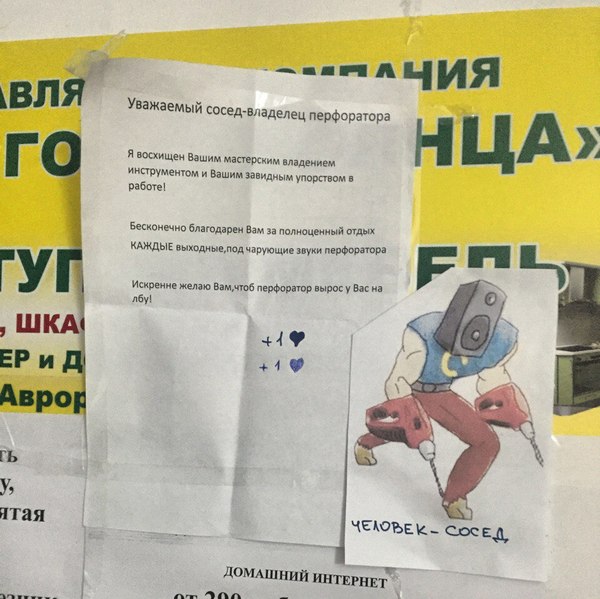 АВЛЯ
ОМПАНИЯ
ГО
НЦА»
Уважаемый сосед-владелец перфоратора
Я восхищен Вашим мастерским владением
инструментом и Вашим завидным упорством в
работе!
Бесконечно благодарен Вам за полноценный отдых
КАЖДЫЕ выходные,под чарующие звуки перфоратора
Искренне желаю Вам,чтоб перфоратор вырос у Вас на
лбу!
+1 ♥
+1 ♥
ТУП
ЕЛЬ
, ШКА
ЕР и Д
Аврор
ть
у,
ятая
ЧЕЛОВЕК-СОСЕД
ДОМАШНИЙ ИНТЕРНЕТ